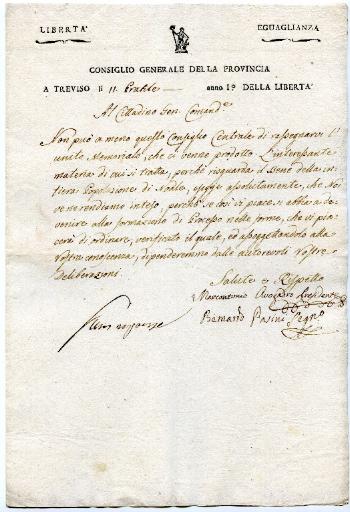 LIBERTA' EGUAGLIANZA
CONSIGLIO GENERALE DELLA PROVINCIA
A TREVISO li 11 Pratile anno 1º DELLA LIBERTA'
Al Cittadino Gen. Comand.e
Non può a meno questo Consiglio Centrale di rassegnarvi l'
unito Memoriale, che ci venne prodotto. L'interessante
materia di cui si tratta, perchè risguarda il bene della in-
tiera Popolazione di Noale, esigge assolutamente, che Noi
ve ne rendiamo inteso, perchè se così vi piace si abbia a de-
venire alla formazione di Processo nelle forme, che vi pia-
cerà di ordinare, verificato il quale, ed assoggettandolo alla
vostra conoscenza, dipenderemo dalle autorevoli Vostre
deliberazioni.
Salute e Rispetto
Marcantonio Avogadro Presidente
Bernardo Pasini Segr.o